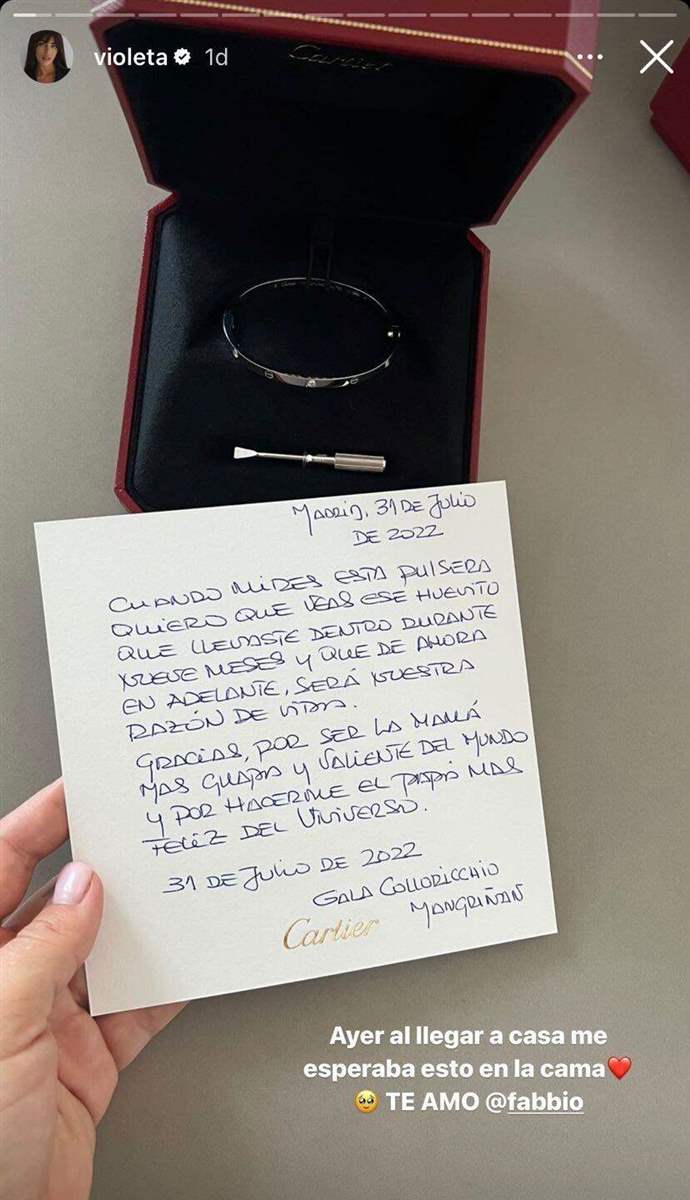 violeta 1d
Cartier
MADRID, 31 DE JULIO
DE 2022
CUANDO MIRES ESTA PULSERA
QUIERO QUE VEAS ESE HUEVITO
QUE LLEVASTE DENTRO DURANTE
NUEVE MESES Y QUE DE AHORA
EN ADELANTE, SERÁ NUESTRA
RAZÓN DE VIDA.
GRACIAS, POR SER LA MAMÁ
MAS GUAPA Y VALIENTE DEL MUNDO
Y POR HACERME EL PAPÁ MAS
FELIZ DEL UNIVERSO.
31 DE JULIO DE 2022
GALA COLLORICCHIO
MANGRIÑAN
Cartier
Ayer al llegar a casa me
esperaba esto en la cama❤️
🥹 TE AMO @fabbio